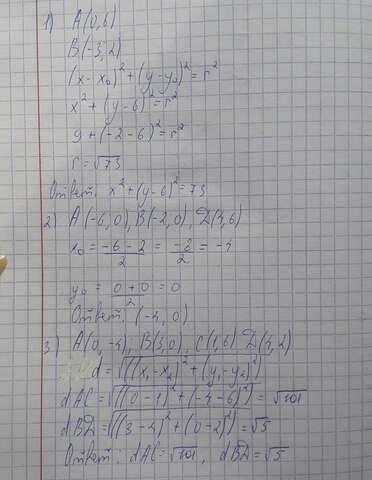 1) A(0,6)
B(-3,2)
(x-x₀)²+(y-y₀)²=r²
x²+(y-6)²=r²
9+(-2-6)²=r²
r=√73
Ответ: x²+(y-6)²=73
2) A(-6,0), B(-2,0), D(4,6)
x₀ = (-6-2)/2 = -8/2 = -4
y₀ = (0+0)/2 = 0
Ответ: (-4,0)
3) A(0,-4), B(3,0), C(1,6) D(4,2)
d=√((x₁-x₂)²+(y₁-y₂)²)
dAC=√((0-1)²+(-4-6)²)=√101
dBD=√((3-4)²+(0-2)²)=√5
Ответ: dAC=√101, dBD=√5